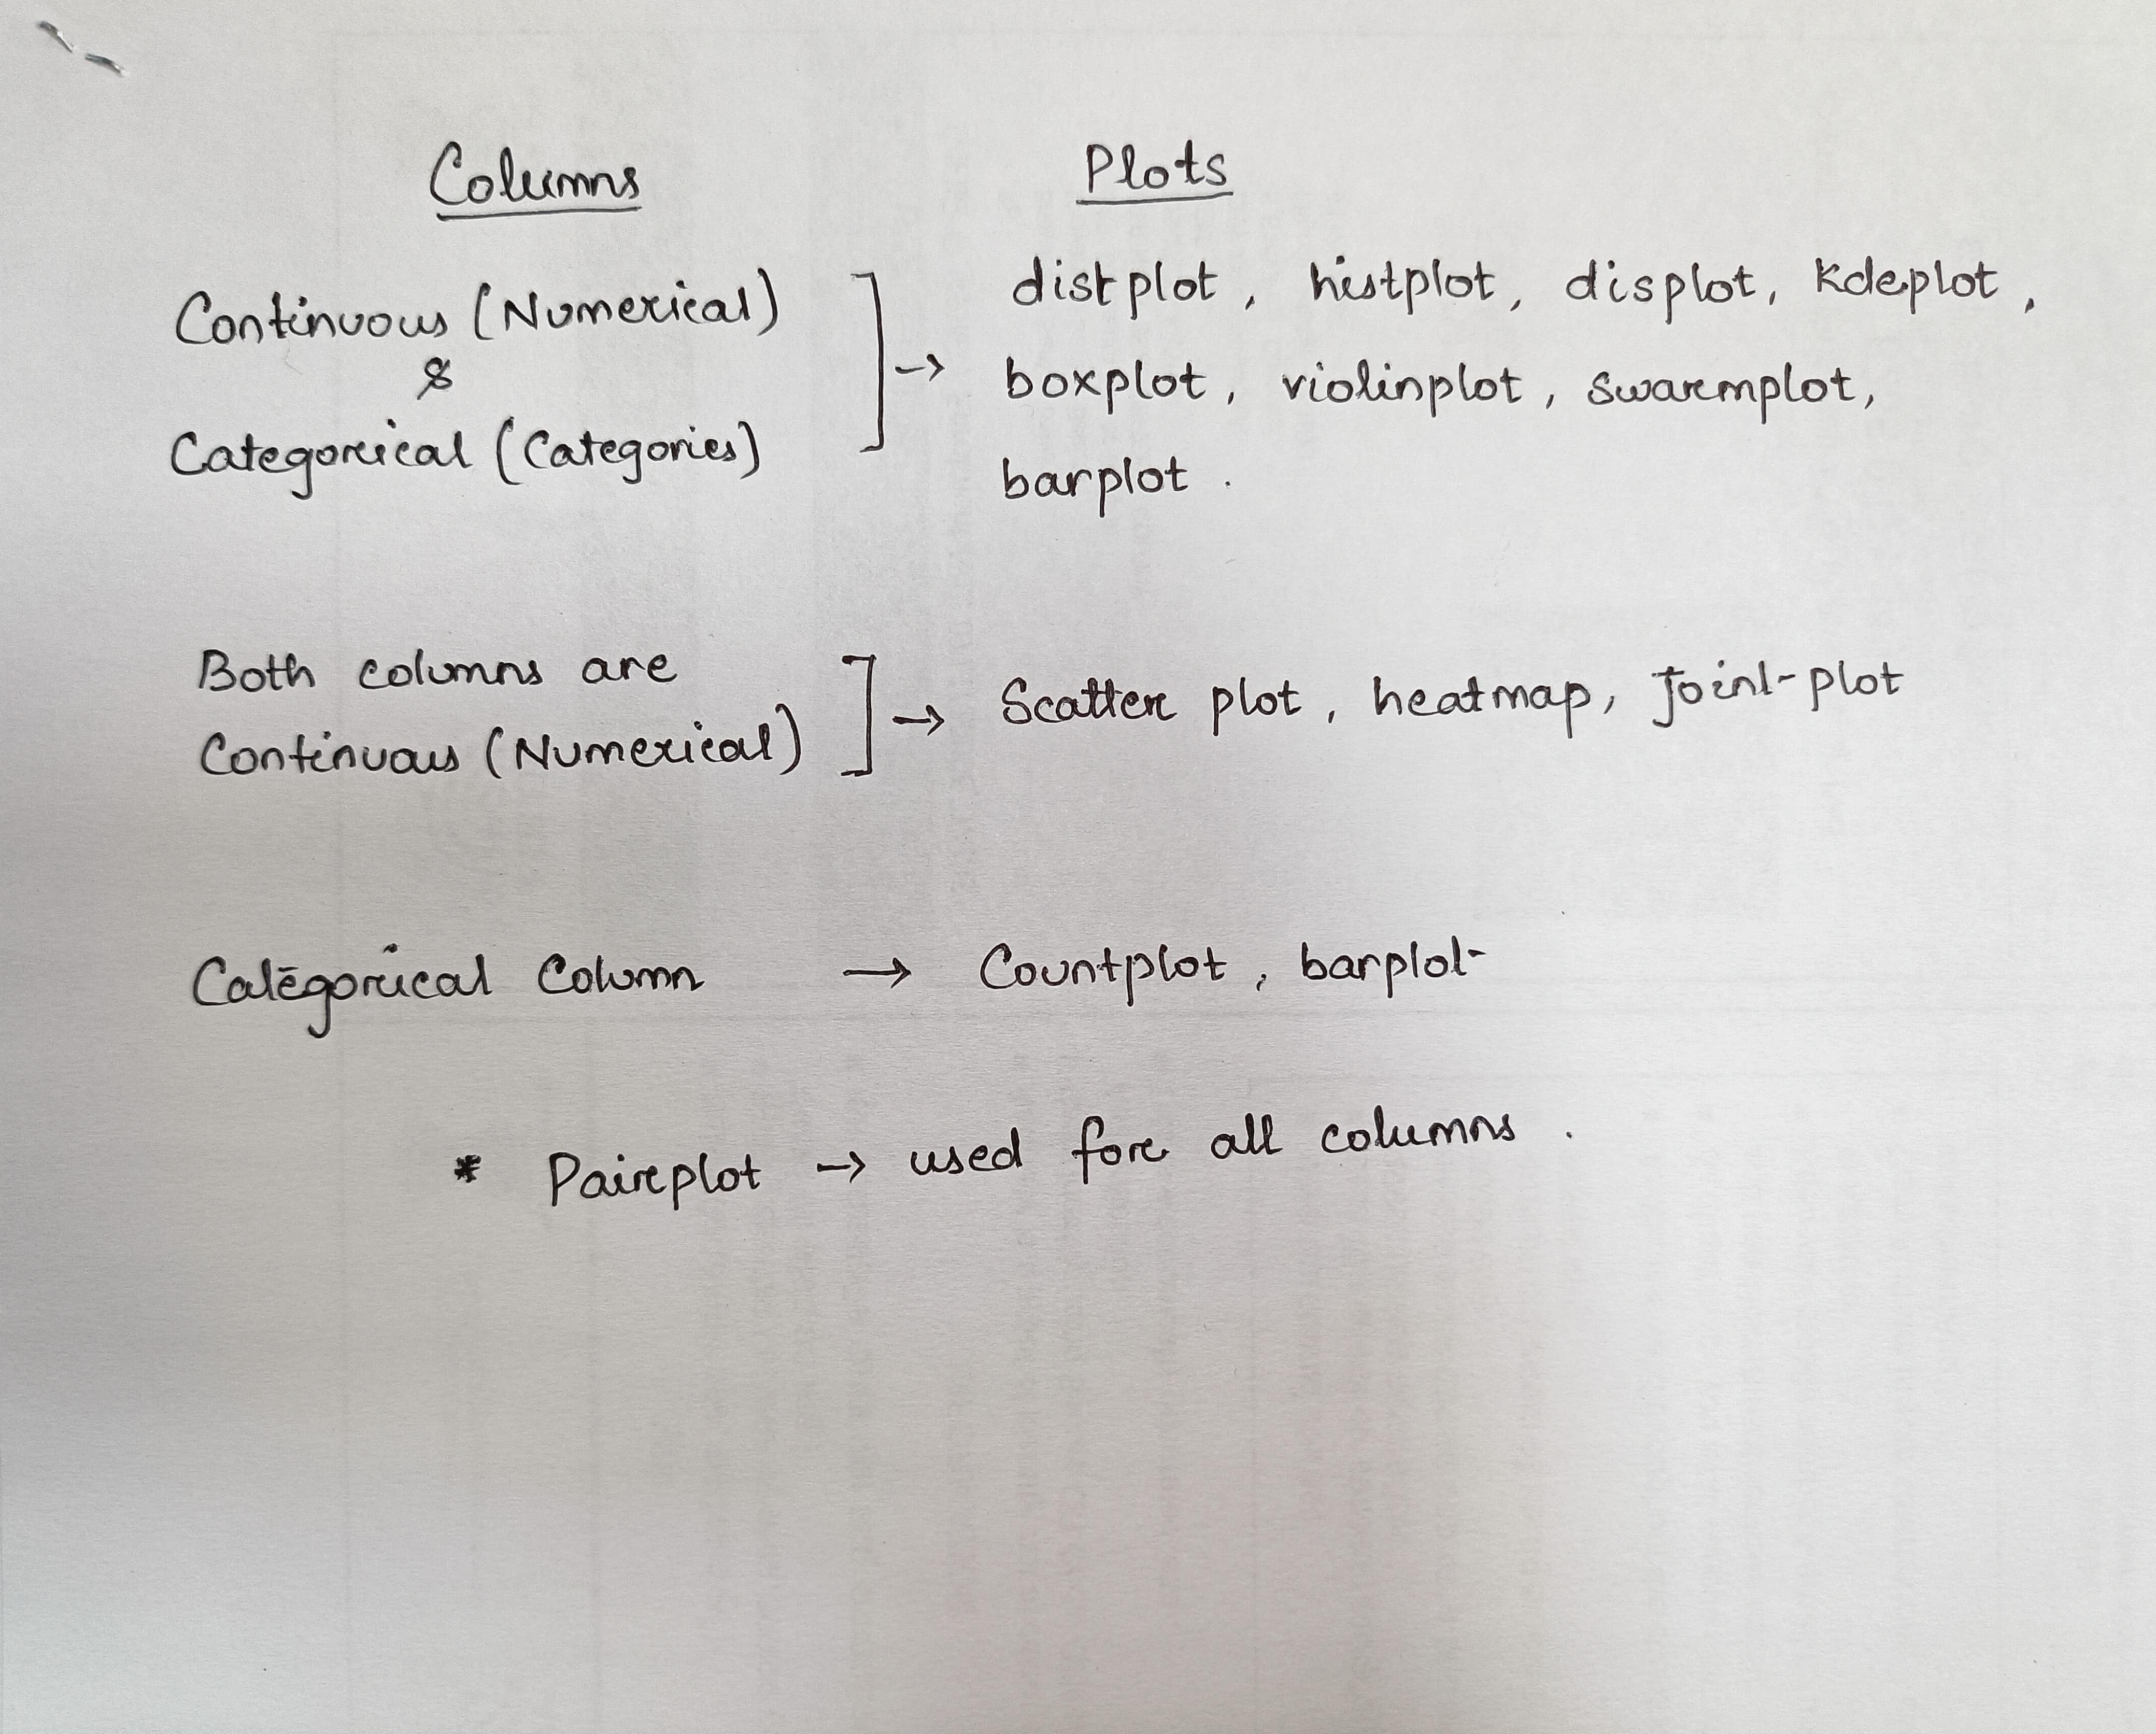 Columns Plots
Continuous (Numerical)
&
Categorical (Categories)
] → distplot, histplot, displot, Kdeplot,
boxplot, violinplot, swarmplot,
barplot.
Both columns are
Continuous (Numerical)
] → Scatter plot, heatmap, Joint-plot
Categorical Column → Countplot, barplot
* Pairplot → used for all columns.